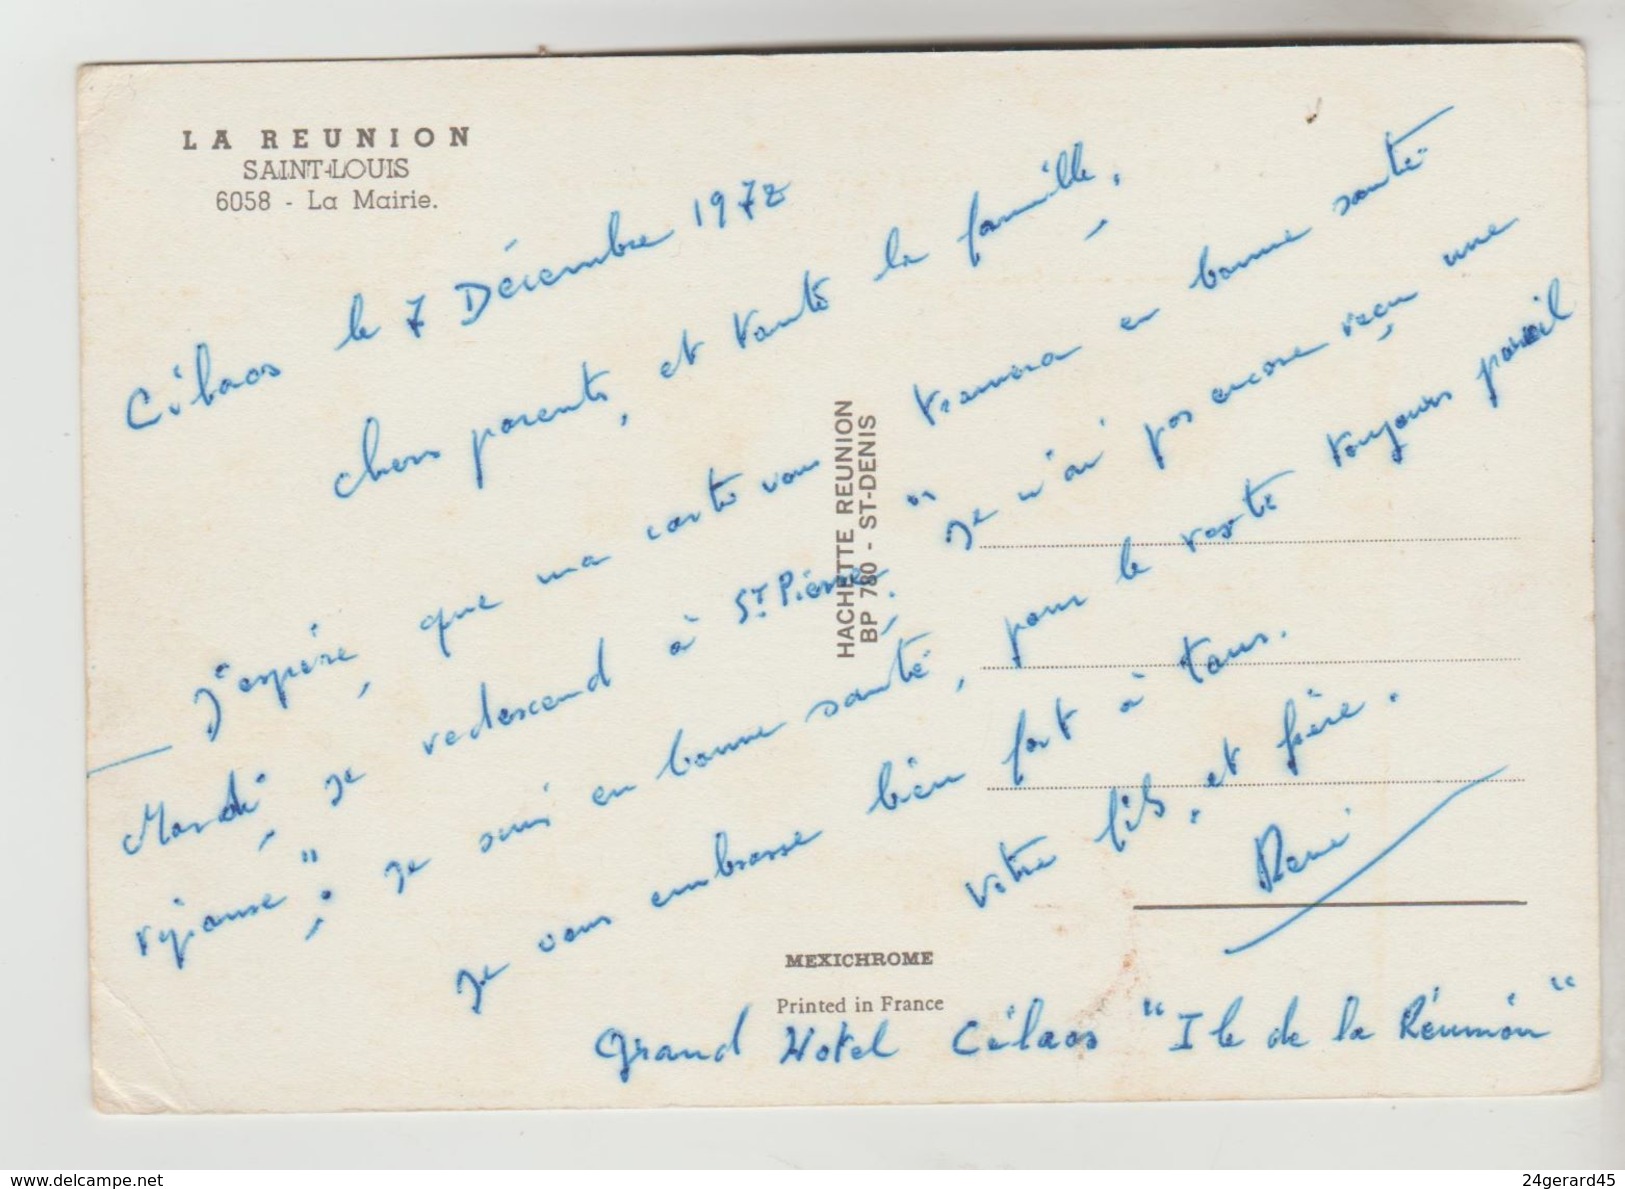 LA REUNION
SAINT-LOUIS
6058 - La Mairie.
Cilaos le 7 Décembre 1972
chers parents, et toute la famille,
J'espère, que ma carte vous trouvera en bonne santé
Mardi, je redescend à St Pierre, "je n'ai pas encore reçu une
réponse"; je suis en bonne santé, pour le reste toujours pareil
je vous embrasse bien fort à tous.
votre fils, et frère.
René
HACHETTE REUNION
BP 780 - ST-DENIS
MEXICHROME
Printed in France
Grand Hotel Cilaos "Ile de la Réunion"
delcampe.net
24gerard45